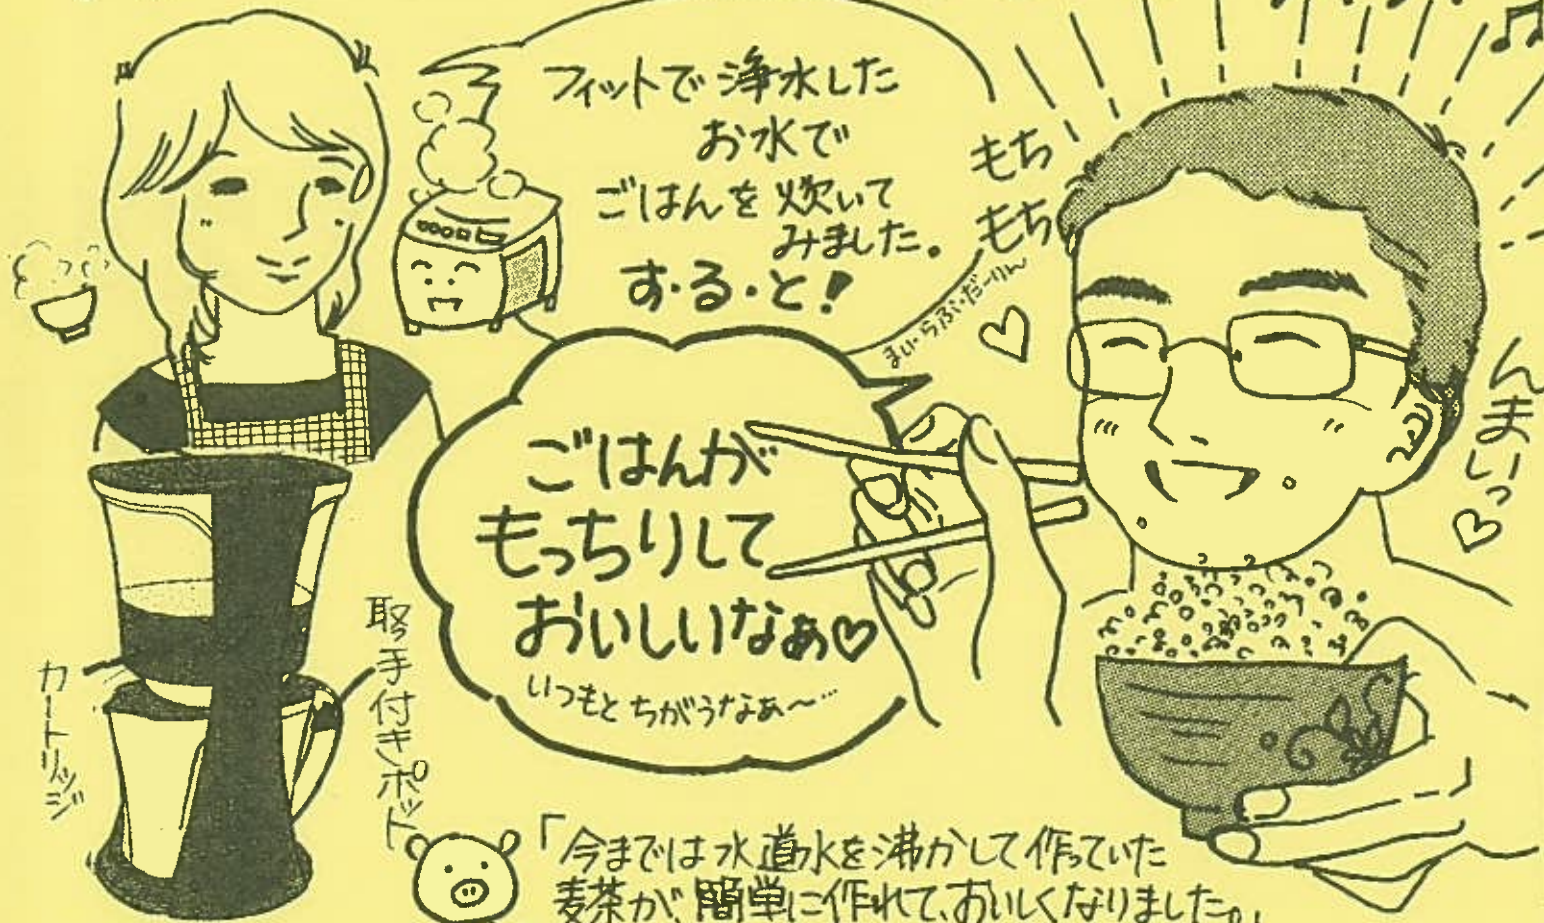 フィットで浄水した
お水で
ごはんを炊いて
みました。
す・る・と!
もち
もち
まい・らぶ・だーりん
んまいっ♡
ごはんが
もっちりして
おいしいなぁ♡
いつもとちがうなぁ〜…
カートリッジ
取っ手付きポット
「今までは水道水を沸かして作っていた
麦茶が、簡単に作れて、おいしくなりました。」